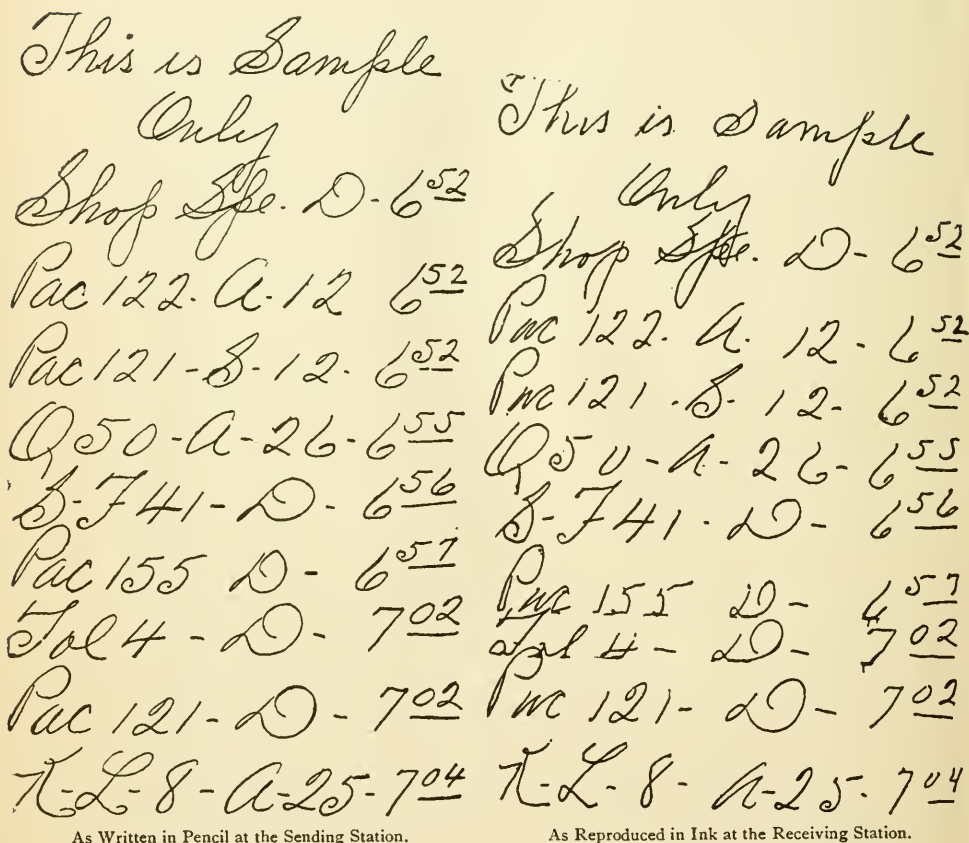 This is Sample
Only
Shop Spe. D - 6 52
Pac 122. A. 12 6 52
Pac 121 - S - 12. 6 52
Q 50 - A - 26 - 6 55
S - F 41 - D - 6 56
Pac 155 D - 6 57
Tol 4 - D - 7 02
Pac 121 - D - 7 02
K - L - 8 - A - 25 - 7 04
As Written in Pencil at the Sending Station.
This is Sample
Only
Shop Spe. D - 6 52
Pac 122. A. 12 - 6 52
Pac 121 . S - 12 - 6 52
Q 50 - A - 26 - 6 55
S - F 41 . D - 6 56
Pac 155 D - 6 57
Tol 4 - D - 7 02
Pac 121 - D - 7 02
K - L - 8 - A - 25 . 7 04
As Reproduced in Ink at the Receiving Station.